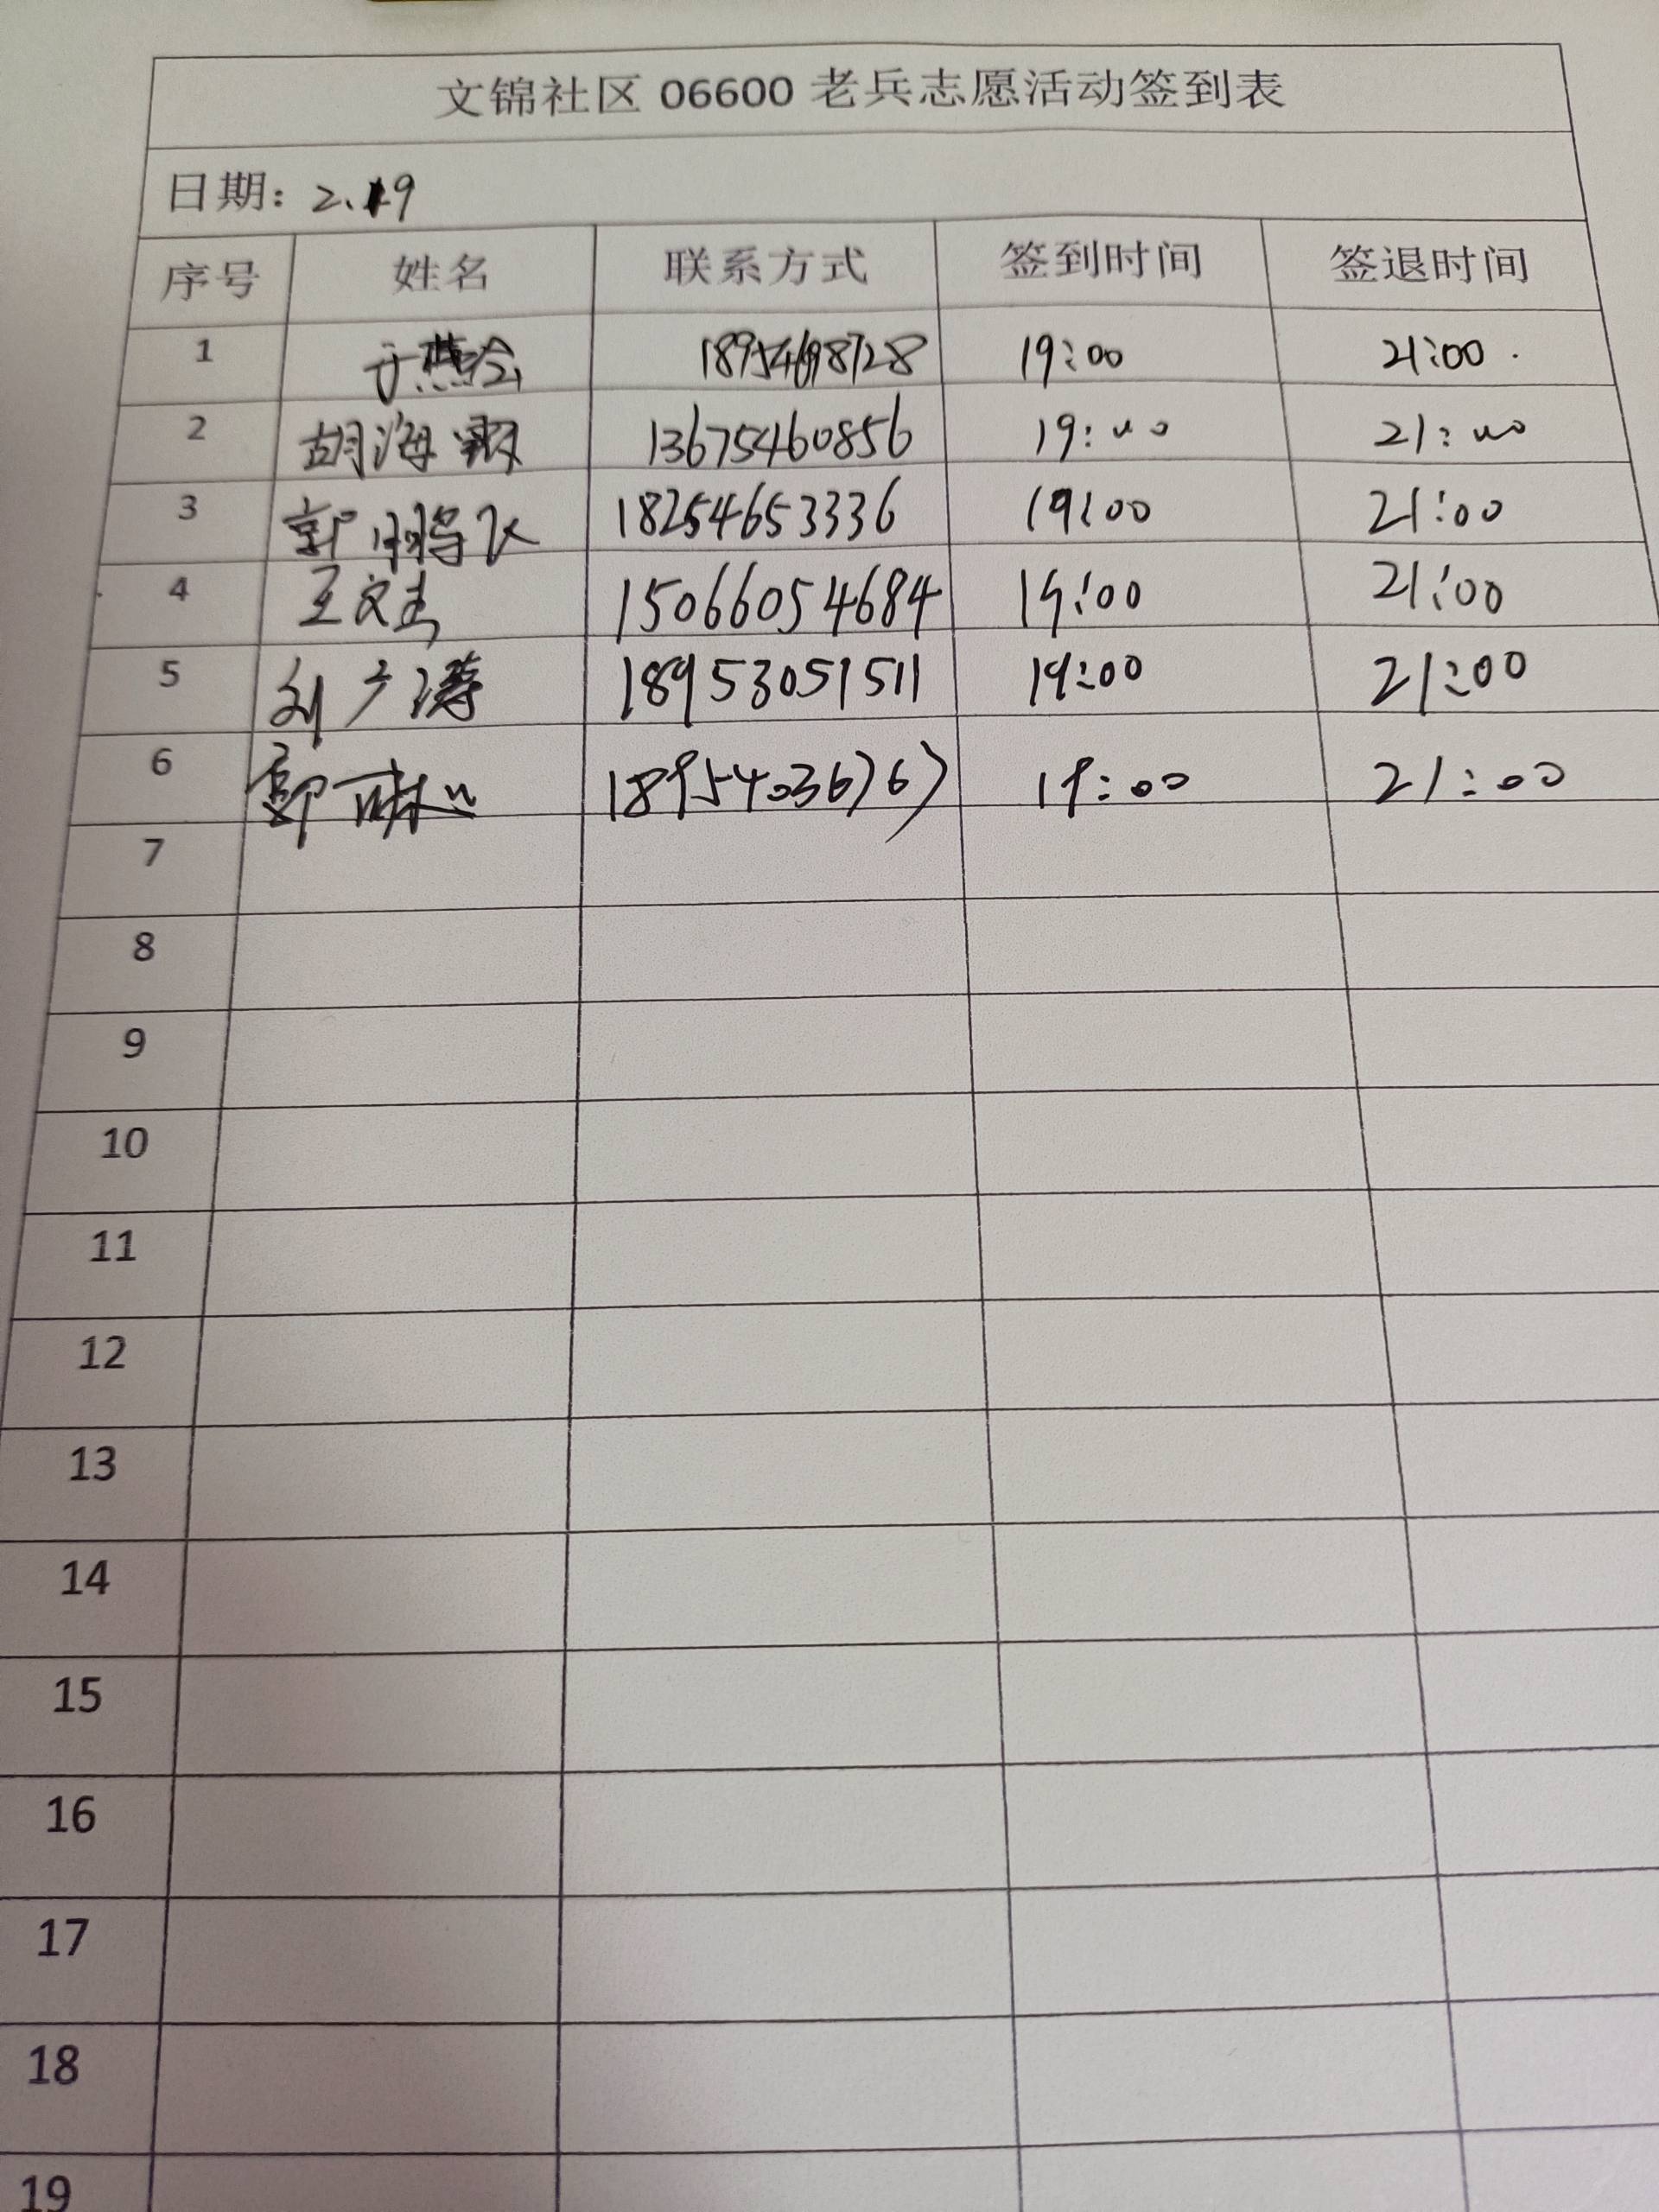 文锦社区 06600 老兵志愿活动签到表
日期: 2.19
序号 姓名 联系方式 签到时间 签退时间
1 于燕会 19:00 21:00
2 胡海 13675460856 19:00 21:00
3 郭鹏飞 18254653336 19:00 21:00
4 王文杰 15066054684 19:00 21:00
5 刘广涛 18953051511 19:00 21:00
6 郭 18954036767 19:00 21:00
7
8
9
10
11
12
13
14
15
16
17
18
19